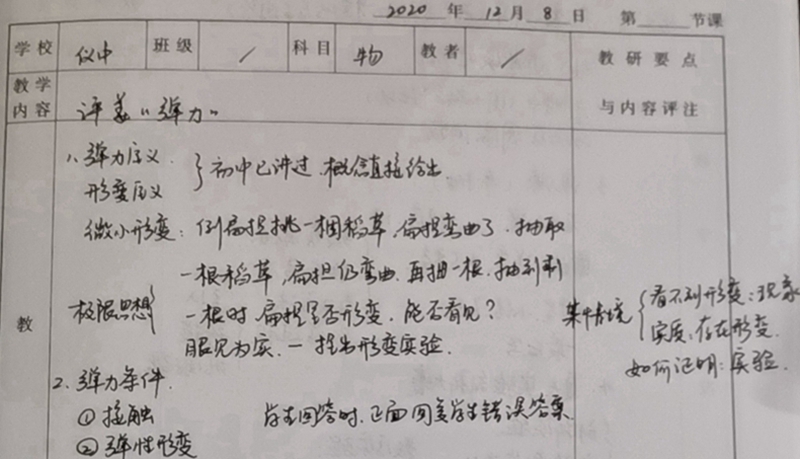 2020 年 12 月 8 日 第 节课
学校 仪中 班级 / 科目 物 教者 / 教研要点
教学内容 评美“弹力” 与内容评注
1、弹力定义
形变定义 } 初中已讲过,概念直接给出
微小形变:例扁担挑一捆稻草,扁担弯曲了,抽取
一根稻草,扁担仍弯曲,再抽一根,抽到剩
极限思想 { 一根时,扁担是否形变,能否看见?
眼见为实,一 形变实验.
情境 { 看不到形变:现象
实质:存在形变.
如何证明:实验.
教
2、弹力条件.
① 接触 学生回答时,正面回 学生错误答案
② 弹性形变